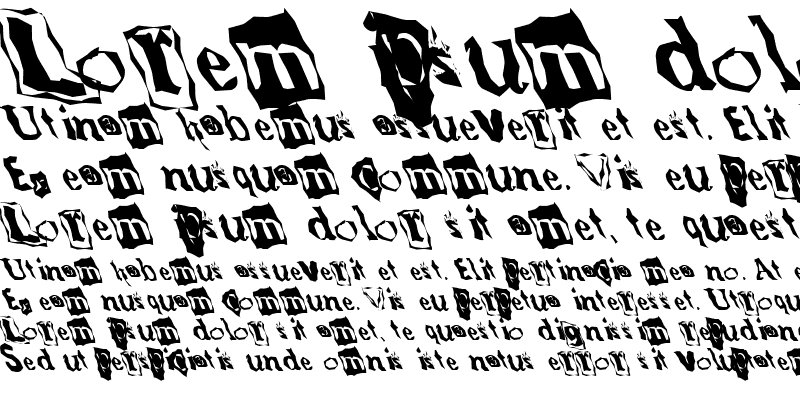 Lorem Ipsum dol
Utinam habemus assueverit et est. Elit
Ex eam nusquam commune. Vis eu per
Lorem Ipsum dolor sit amet, te quaest
Utinam habemus assueverit et est. Elit pertinacia mea no. At e
Ex eam nusquam commune. Vis eu perpetua interesset. Utroqu
Lorem Ipsum dolor sit amet, te quaestio dignissim repudian
Sed ut perspiciatis unde omnis iste natus error sit voluptatem